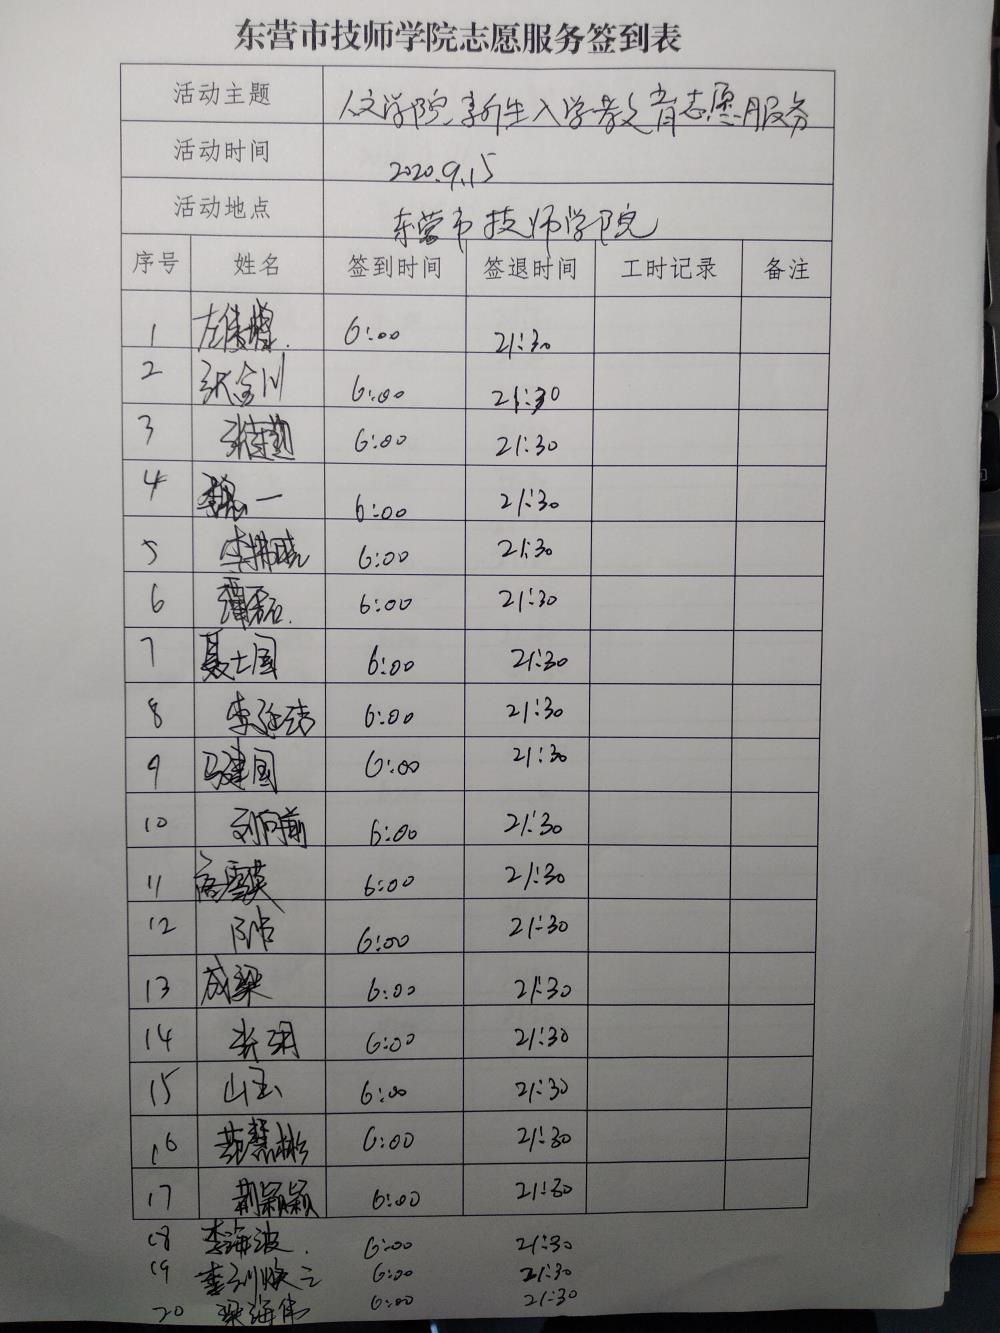 东营市技师学院志愿服务签到表
活动主题 人文学院新生入学教育志愿服务
活动时间 2020.9.15
活动地点 东营市技师学院
序号 姓名 签到时间 签退时间 工时记录 备注
1 6:00 21:30
2 张金川 6:00 21:30
3 6:00 21:30
4 6:00 21:30
5 李拂晓 6:00 21:30
6 谭磊 6:00 21:30
7 聂士国 6:00 21:30
8 李延涛 6:00 21:30
9 马建国 6:00 21:30
10 刘向前 6:00 21:30
11 高雪英 6:00 21:30
12 6:00 21:30
13 成梁 6:00 21:30
14 6:00 21:30
15 山玉 6:00 21:30
16 6:00 21:30
17 荆颖颖 6:00 21:30
18 李海波 6:00 21:30
19 6:00 21:30
20 梁海伟 6:00 21:30